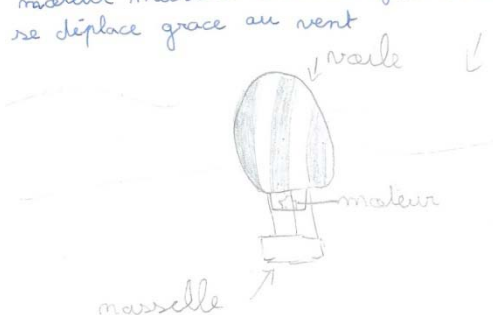 se déplace grace au vent
voile
moteur
nasselle